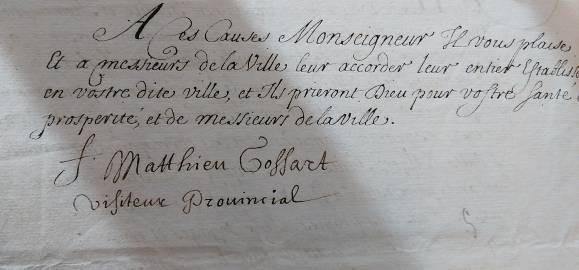 A Ces Causes Monseigneur Il vous plaise
Et a messieurs de la Ville leur accorder leur entier
en vostre dite ville, et Ils prieront Dieu pour vostre santé
prosperité, et de messieurs de la ville.
f. Matthieu Gossart
visiteur Provincial